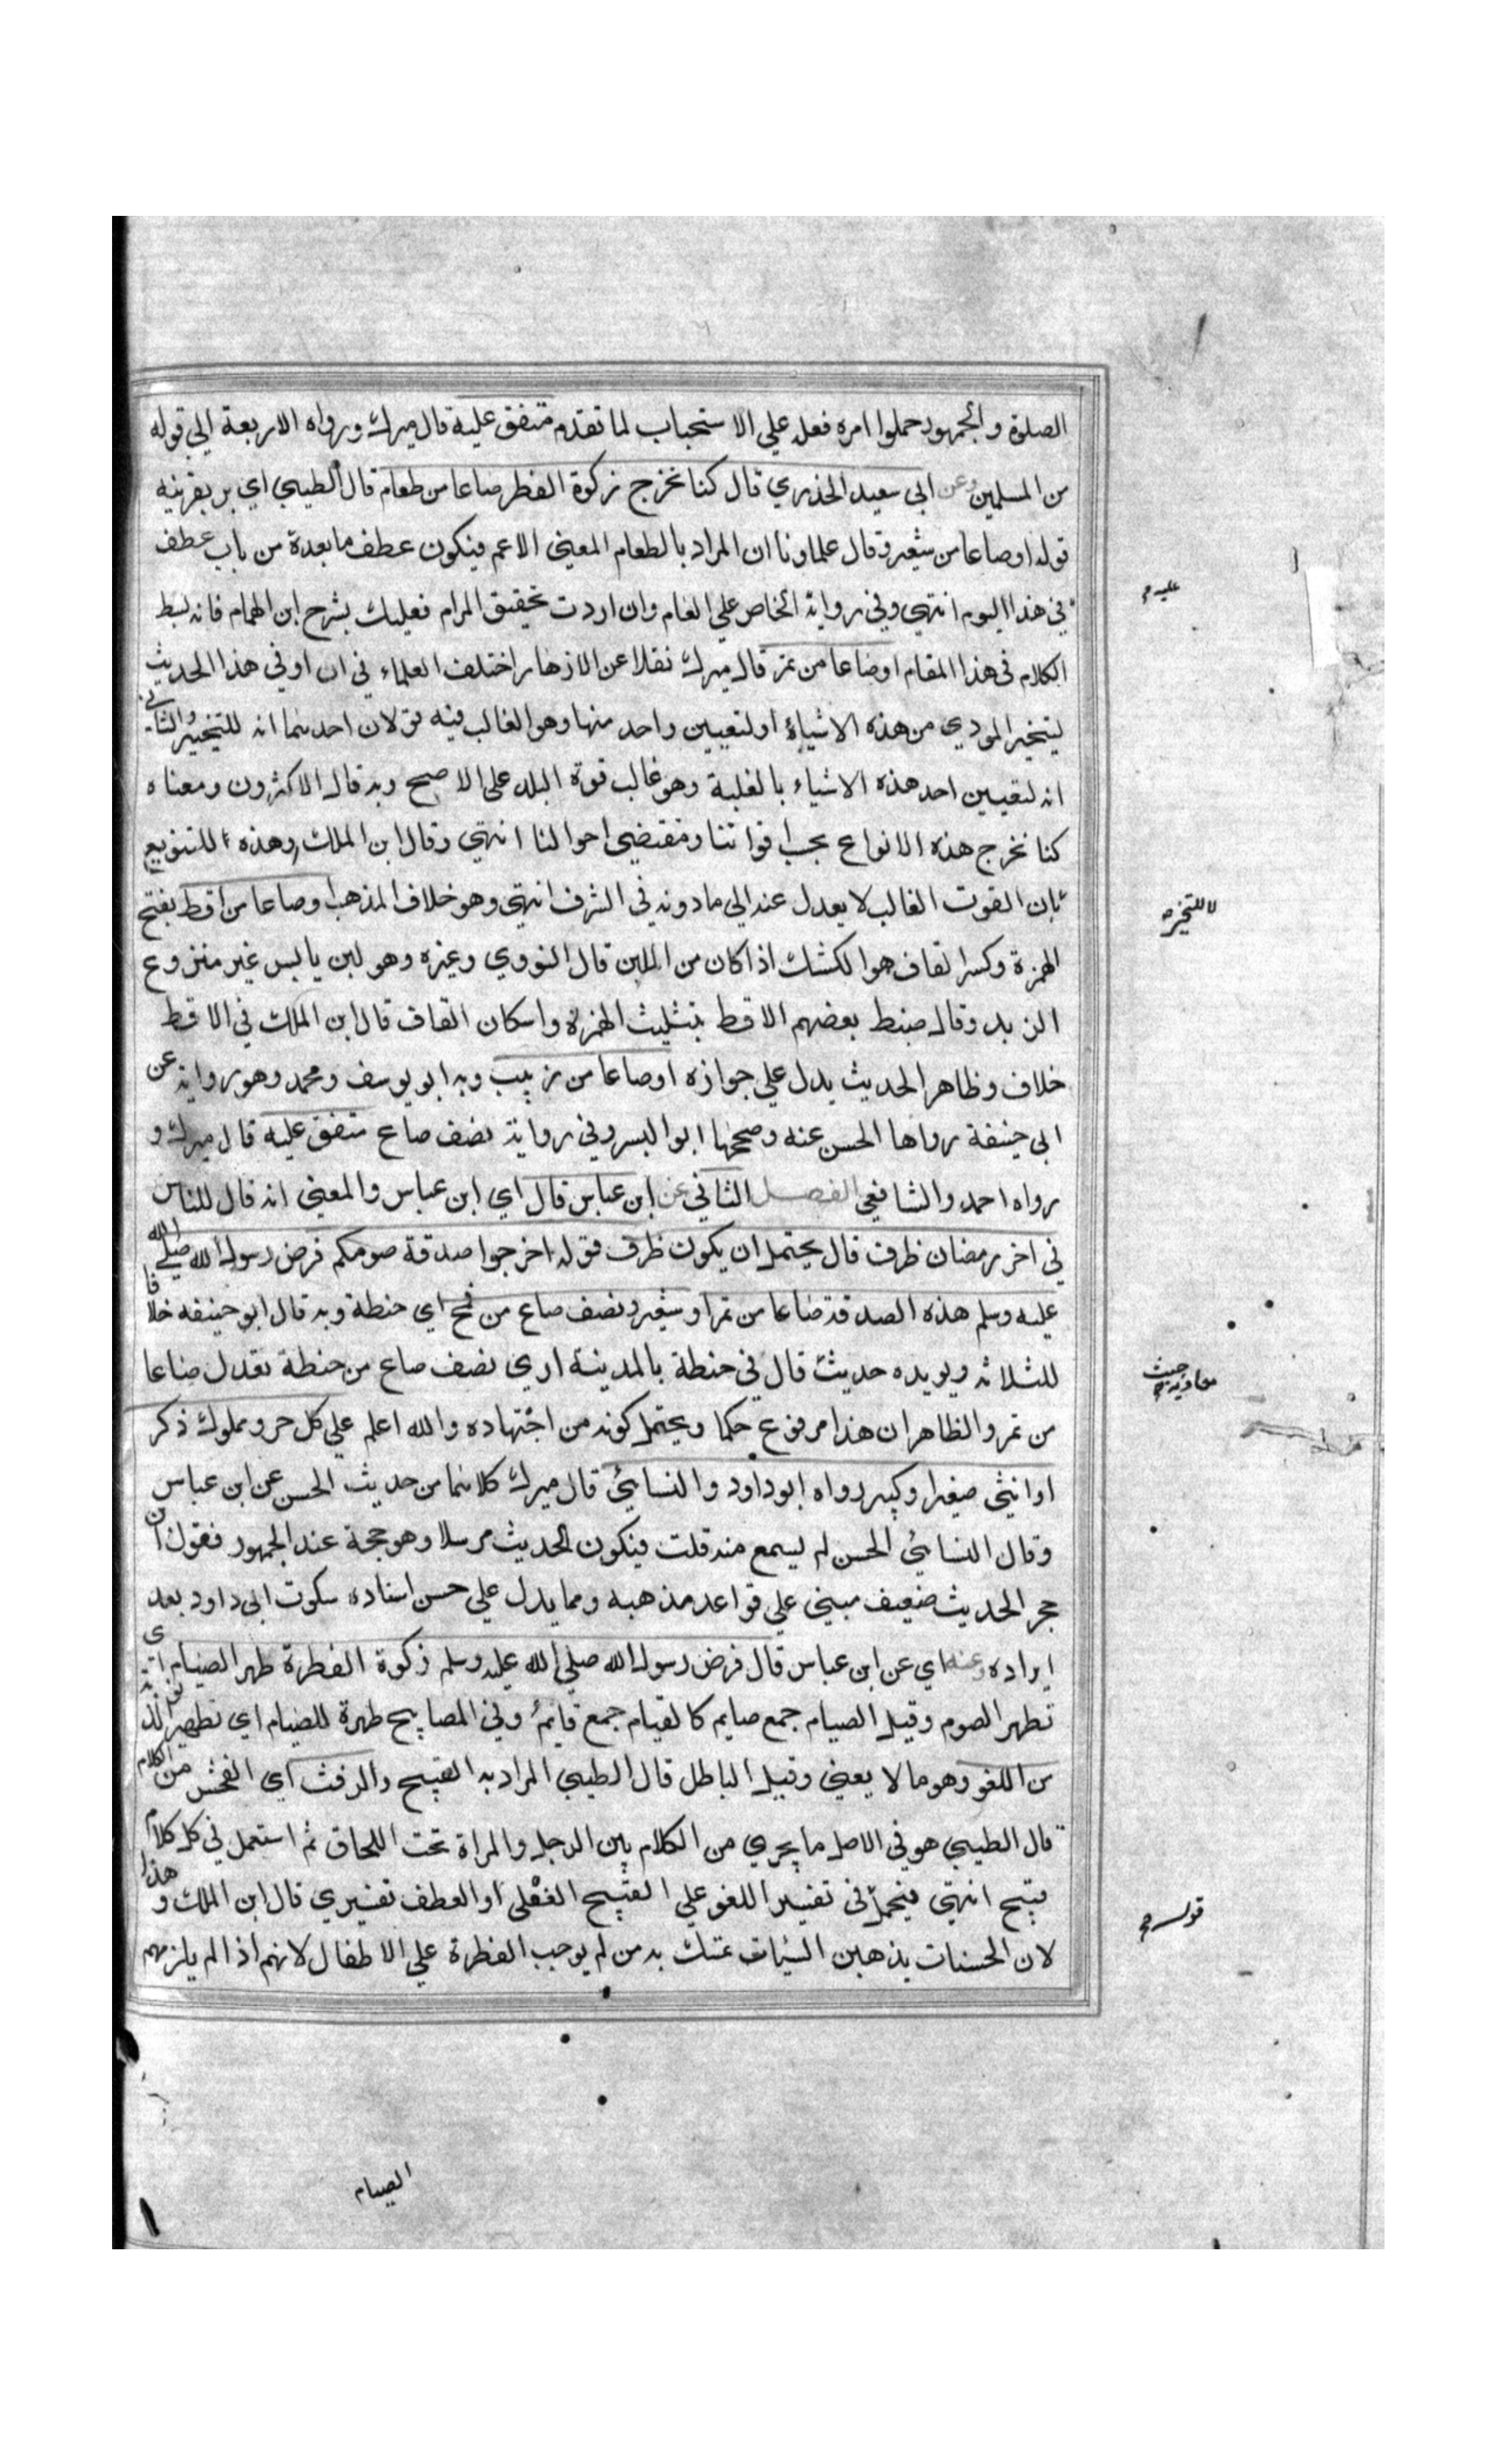 الصلوة والجمهور حملوا امره فعله علي الاستحباب لما تقدم متفق عليه قال ميرك ورواه الاربعة الي قوله
من المسلمين وعن ابي سعيد الخدري قال كنا نخرج زكوة الفطر صاعا من طعام قال الطيبي اي بر بقرينه
قوله اوصاعا من شعير وقال علماونا ان المراد بالطعام المعني الاعم فيكون عطف ما بعدة من باب عطف
في هذا اليوم انتهي وفي رواية الخاص علي العام وان اردت تحقيق المرام فعليك بشرح ابن الهمام فانه بسط
الكلام في هذا المقام اوصاعا من تمر قال ميرك نقلا عن الازهار اختلف العلماء في ان او في هذا الحديث
ليتخير المودي من هذه الاشياء اولتعيين واحد منها وهو الغالب فيه قولان احدهما انه للتخيير والثاني
انه لتعيين احد هذه الاشياء بالغلبة وهو غالب قوة البلد علي الاصح وبه قال الاكثرون ومعناه
كنا نخرج هذه الانواع بحسب اقواتنا ومقتضي احوالنا انتهي وقال ابن الملك وهذه للتنويع
بان القوت الغالب لا يعدل عنه الي مادونه في الشرف انتهي وهو خلاف المذهب اوصاعا من اقط بفتح
الهمزة وكسر القاف هو الكشك اذا كان من اللبن قال النووي وغيره وهو لبن يابس غير منزوع
الزبد وقال ضبط بعضهم الاقط بتثليث الهمزة واسكان القاف قال ابن الملك في الاقط
خلاف وظاهر الحديث يدل علي جوازه اوصاعا من زبيب وبه ابو يوسف ومحمد وهو رواية عن
ابي حنيفة رواها الحسن عنه وصححها ابو اليسر وفي رواية نصف صاع متفق عليه قال ميرك و
رواه احمد والشافعي الفصل الثاني عن ابن عباس قال اي ابن عباس والمعني انه قال للناس
في اخر رمضان ظرف قال يحتمل ان يكون ظرف قوله اخرجوا صدقة صومكم فرض رسول الله صلي الله
عليه وسلم هذه الصدقة صاعا من تمر او شعير ونصف صاع من قمح اي حنطة وبه قال ابو حنيفه خلافا
للثلاثه ويويده حديث قال في حنطة بالمدينة اري نصف صاع من حنطة تعدل صاعا
من تمر والظاهر ان هذا مرفوع حكما ويحتمل كونه من اجتهاده والله اعلم علي كل حر ومملوك ذكر
اوانثي صغير اوكبير رواه ابو داود والنسائي قال ميرك كلاهما من حديث الحسن عن ابن عباس
وقال النسائي الحسن لم يسمع منه قلت فيكون الحديث مرسلا وهو حجة عند الجمهور فقول ابن
حجر الحديث ضعيف مبني علي قواعد مذهبه ومما يدل علي حسن اسناده سكوت ابي داود بعد
ايراده وعنه اي عن ابن عباس قال فرض رسول الله صلي الله عليه وسلم زكوة الفطرة طهر الصيام اي
تطهر الصوم وقيل الصيام جمع صايم كالقيام جمع قائم وفي المصابيح طهرة للصيام اي تطهير
من اللغو وهو مالا يعني وقيل الباطل قال الطيبي المراد به القبيح والرفث اي الفحش من الكلام
قال الطيبي هو في الاصل ما يجري من الكلام بين الرجل والمراة تحت اللحاف ثم استعمل في كل كلام
قبيح انتهي فيحمل في تفسير اللغو علي القبيح الفعلي او العطف تفسيري قال ابن الملك وهذا
لان الحسنات يذهبن السيات تمسك به من لم يوجب الفطرة علي الاطفال لانهم اذا لم يلزمهم
عليه
لا للتخيير
معاوية حيث
قوله
الصيام